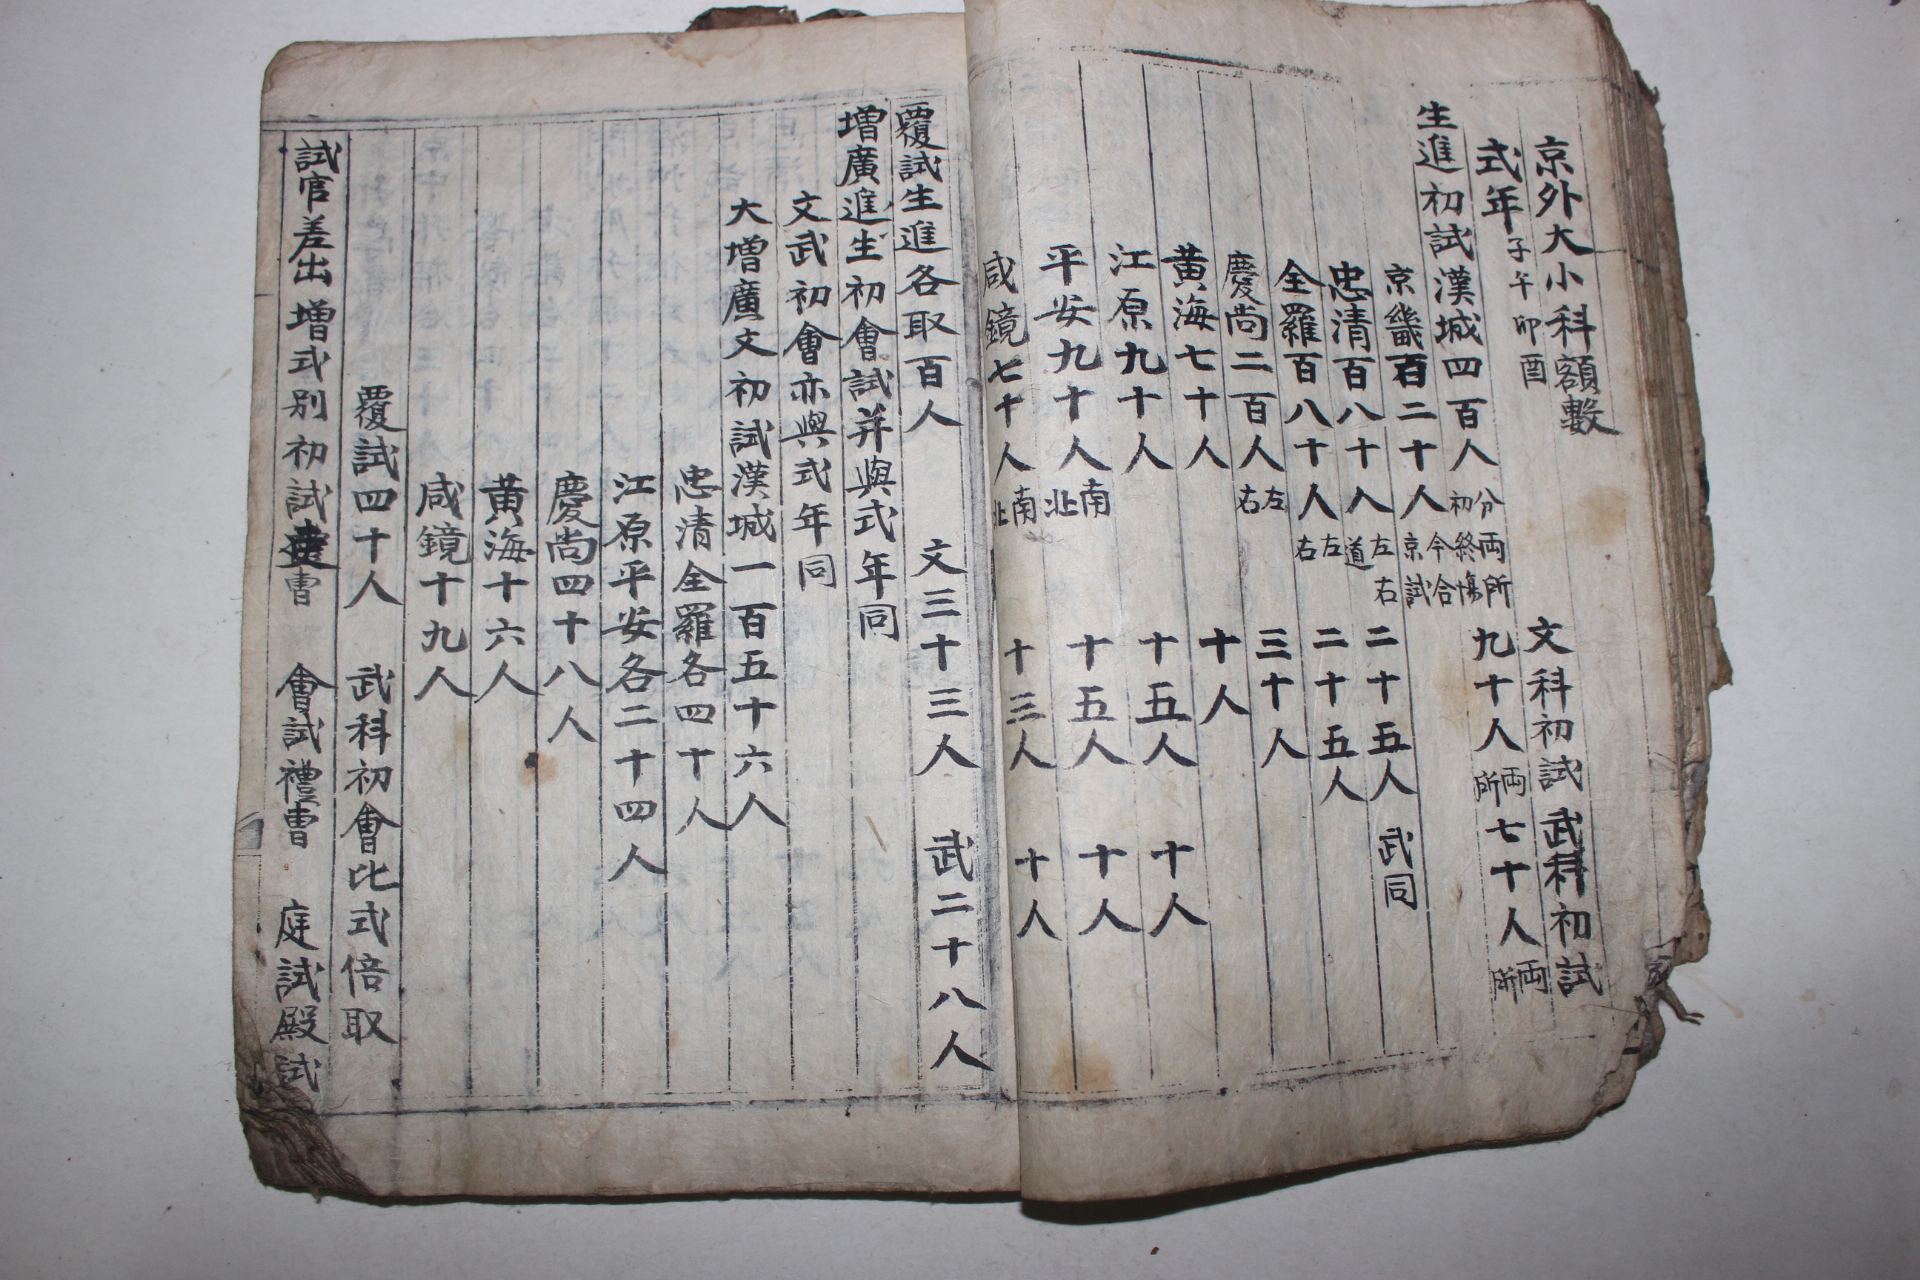 京外大小科額數 文科初試 武科初試
式年 子午卯酉
生進初試漢城四百人 分兩所 初終場 九十人 兩所 七十人 兩所
京畿百二十人 今合京試 左右
忠淸百八十人 左右道 二十五人 武同
全羅百八十人 左右 二十五人
慶尙二百人 左右 三十人
黃海七十人 十人
江原九十人 十五人 十人
平安九十人 南北 十五人 十人
咸鏡七十人 南北 十三人 十人
覆試生進各取百人 文三十三人 武二十八人
增廣進生初會試并與式年同
文武初會亦與式年同
大增廣文初試漢城一百五十六人
忠淸全羅各四十人
江原平安各二十四人
慶尙四十八人
黃海十六人
咸鏡十九人
覆試四十人 武科初會比式倍取
試官差出增式別初試 曹 會試禮曹 庭試殿試